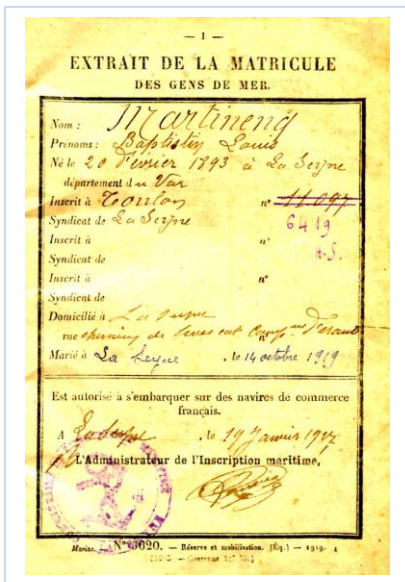 — 1 —
EXTRAIT DE LA MATRICULE
DES GENS DE MER.
Nom : Martineng
Prénoms : Baptistin Louis
Né le 20 Février 1893 à La Seyne
département du Var
Inscrit à Toulon n° 11.097
Syndicat de La Seyne 6419
Inscrit à n° n.S.
Syndicat de
Inscrit à n°
Syndicat de
Domicilié à La Seyne
rue chemin de n°
Marié à La Seyne , le 14 octobre 1919
Est autorisé à s'embarquer sur des navires de commerce
français.
A La Seyne , le 19 Janvier
L'Administrateur de l'Inscription maritime,
Marine. — N° 3620. — Réserve et mobilisation. (Éq.) — 1919.